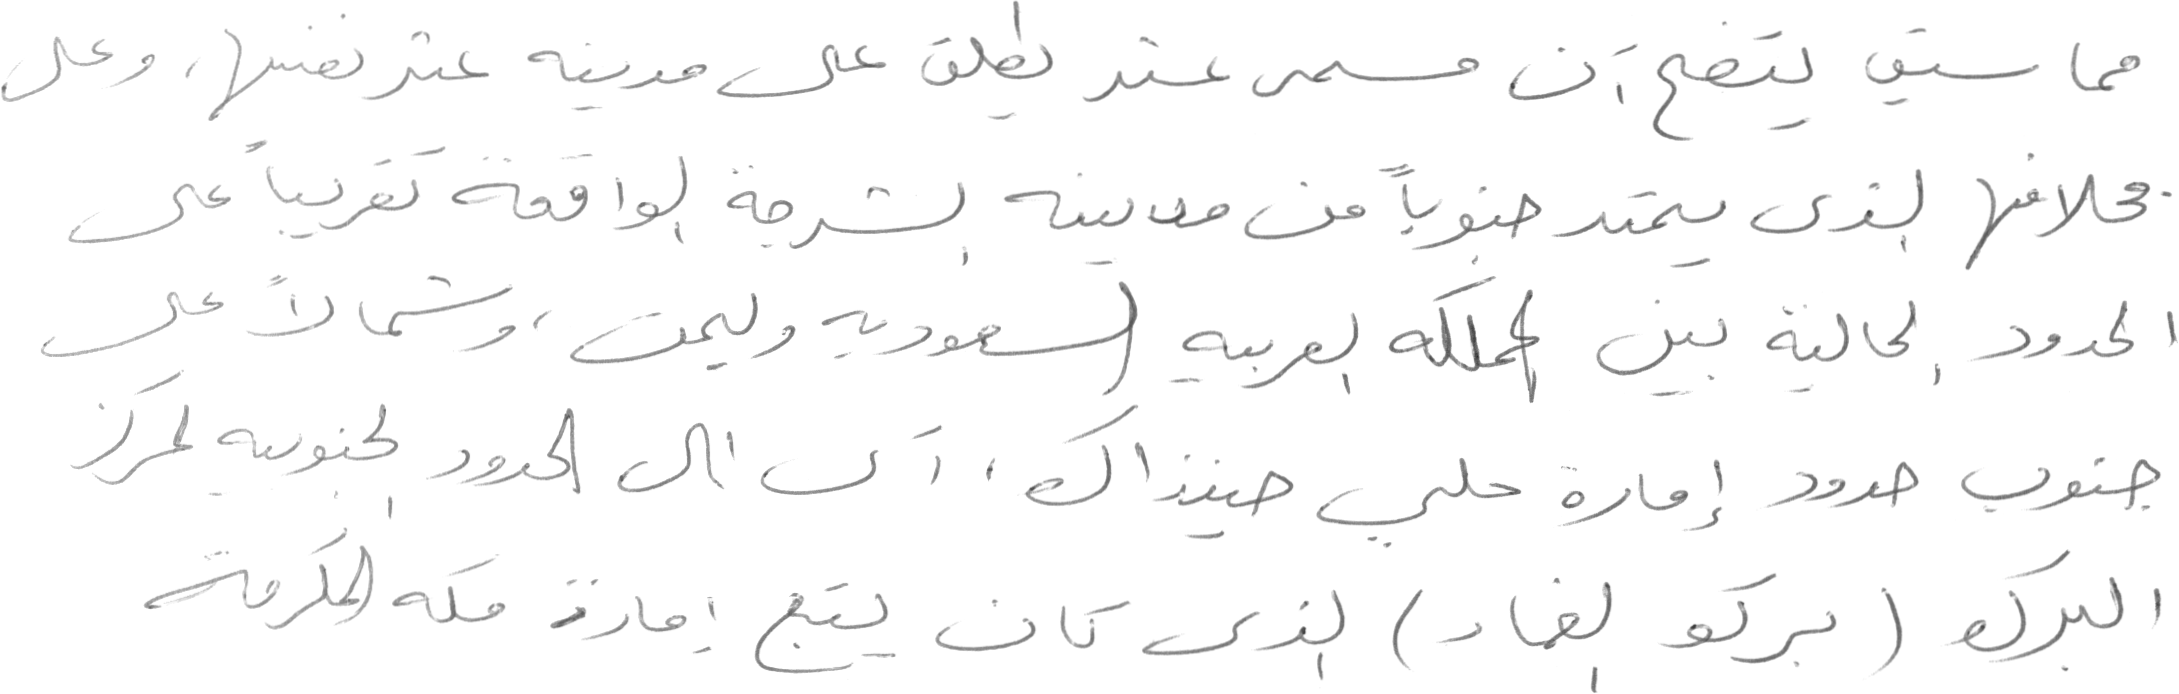 مما سبق يتضح أن مسمى عثر يطلق على مدينه عثر نفسها، وعلى
مخلافها الذى يمتد جنوباً من مدينه الشرجة الواقعة تقريباً على
الحدود الحالية بين المملكه العربيه السعوديه وليمن، وشمالاً على
جنوب حدود إمارة حلي حينذاك، أى الى الحدود الجنوبيه لمركز
البرك (بركو الغماد) الذى كان يتبع إمارة مكه المكرمة